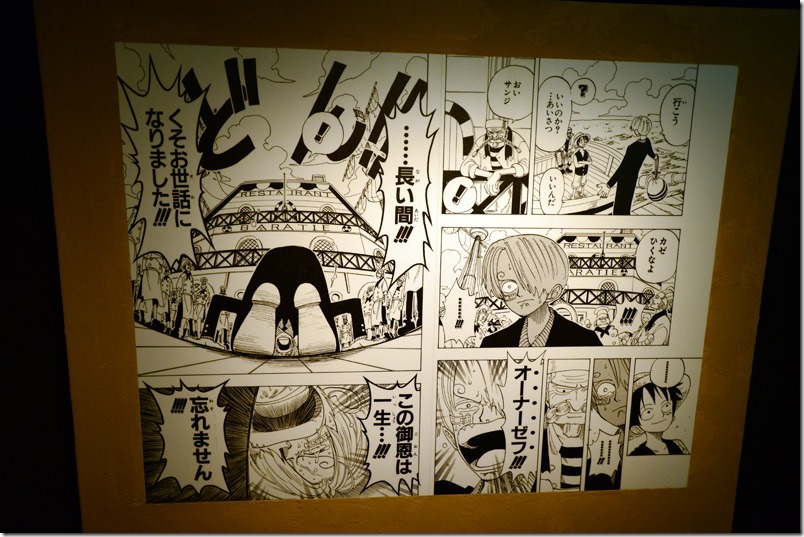 行こう
いいのか?
…あいさつ
いいんだ
おい
サンジ
カゼ
ひくなよ
RESTAURANT
BARATIE
………!!
!!!
………
………!!!
オーナーゼフ!!!
……長い間!!!
なが
あいだ
くそお世話に
なりました!!!
どん!!
RESTAURANT
BARATIE
この御恩は
ごおん
一生…!!!
いっしょう
忘れません
わす
!!!!